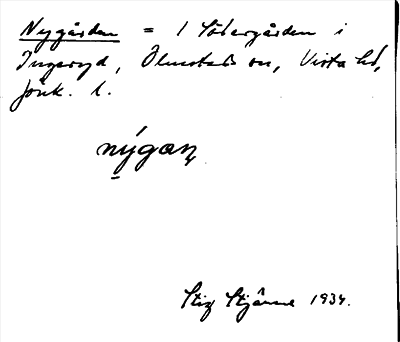 Nygården = 1 Södergården i
Ingeryd, Ölmstads sn, Vista hd,
Jönk. l.
nýgaɳ
Stig Stjärne 1934.